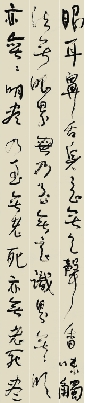 眼耳鼻舌身意無色聲香味觸
法無眼界無乃至無意識界無〻明
亦無〻明盡乃至無老死亦無老死盡